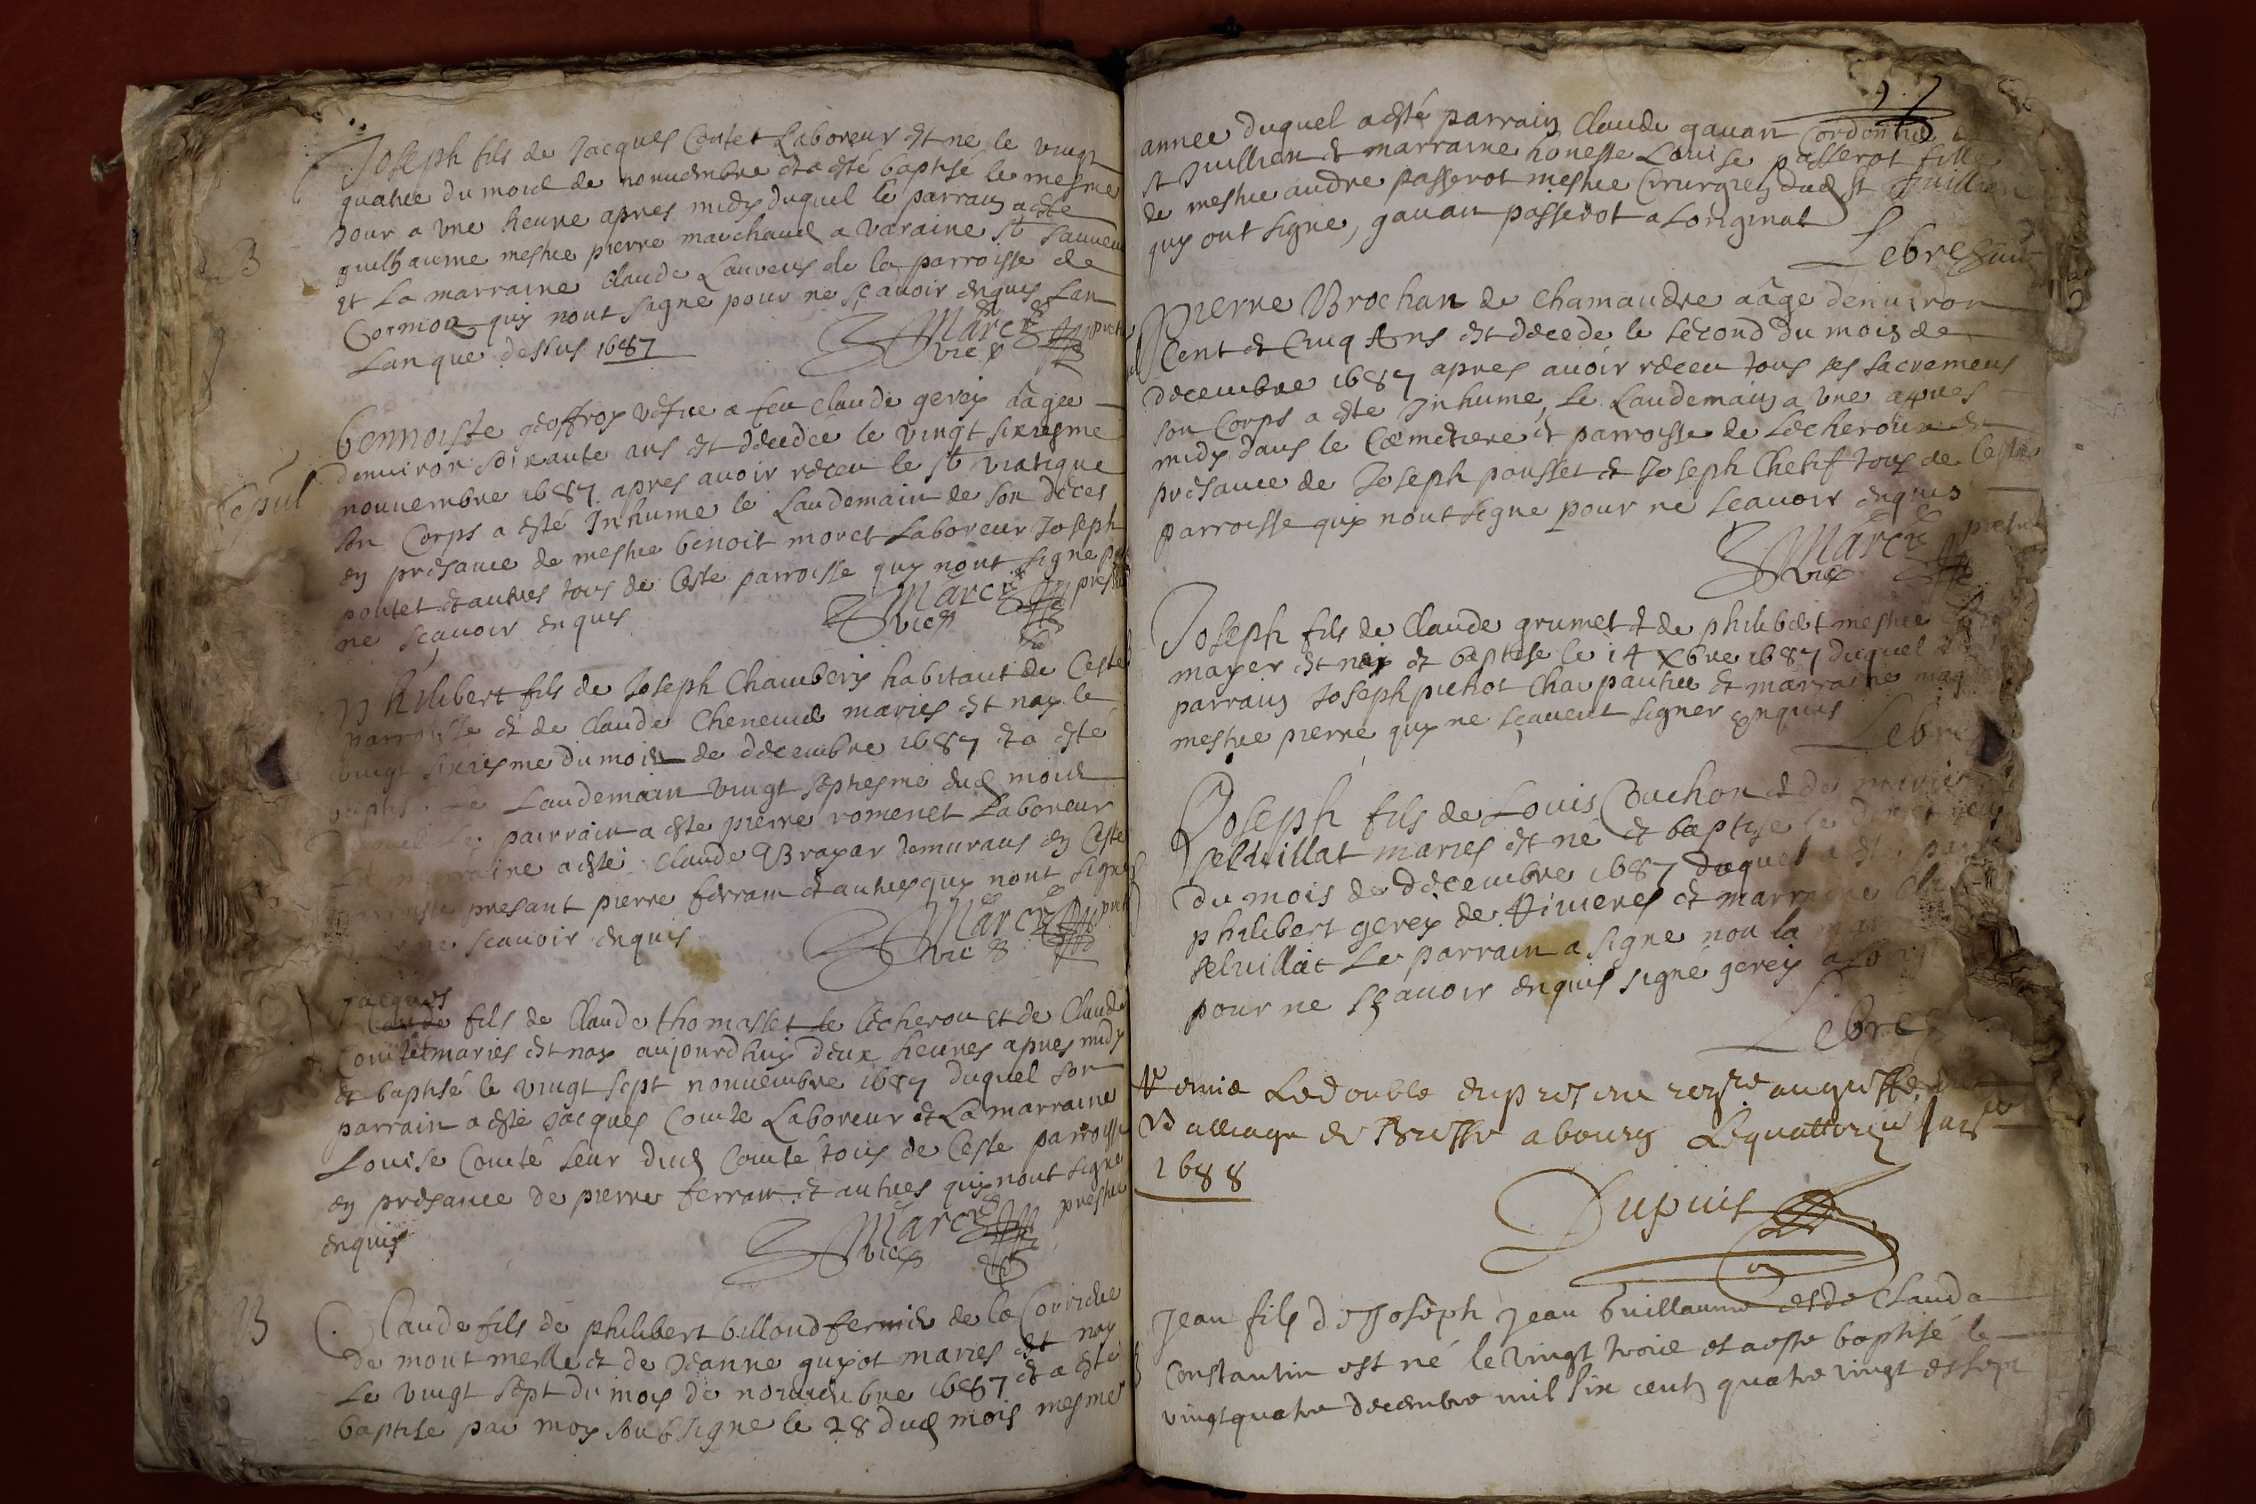 Joseph fils de Jacques Contet Laboreur est né le vingt
quatre du mois de nouuembre et a esté baptisé le mesme
jour a vne heure apres midy duquel le parrain a esté
guilhaume mestre pierre marchand a varaine St Sauueur
et La marraine Claude Lauvens de la parroisse de
Cormoz quy nont signe pour ne sçauoir enquis Lan
Lan que dessus 1687
Marc vic prestre
B
bennoiste geoffroy vefue a feu Claude gerey aâgee
denuiron soixante ans est decedee le vingt sixiesme
nouuembre 1687 apres auoir receu le St viatique
son Corps a esté Inhume le Landemain de son deces
en presance de mestre benoit moret Laboreur Joseph
poulet et autres tous de Ceste parroisse quy nont signe pour
ne sçauoir enquis
Marc vic prestre
Sepul
Philibert fils de Joseph Chambery habitant de Ceste
parroisse et de Claude Cheneuie mariés est nay le
vingt sixiesme du mois de decembre 1687 et a esté
baptisé Le Landemain vingt septiesme dud mois
duquel Le pairrain a esté pierre romenet Laboreur
La marraine a esté Claude Brayar demurans en Ceste
parroisse presant pierre ferran et autres quy nont signe
ne scauoir enquis
Marc vic prest
Jacques
Claude fils de Claude thomasset de lécherou et de Claude
Comte maries est nay aujourdhuy deux heures apres midy
et baptisé le vingt sept nouuembre 1687 duquel son
parrain a esté Jacques Comte Laboreur et La marraine
Louise Comté seur dud Comte tous de Ceste parroisse
en presance de pierre ferran et autres quy nont signe
enquis
Marc vic prestre
B
Claude fils de philibert billoud fermier de la
de mont merle et de Jeanne guyot maries est nay
Le vingt sept du mois de nouuembre 1687 et a esté
baptise par moy soubsigne le 28 dud mois mesme
97
annee duquel a esté parrain Claude gauan Cordonnie
St Juillien et marraine honeste Louise passerot fille
de mestre andre passerot mestre Cirurgien dud St Juillien
quy ont signe, gauan passerot a Loriginal
Lebre
Pierre Brochan de Chamandre aâge denuiron
Cent et Cinq Ans est decede le second du mois de
decembre 1687 apres auoir receu tous ses sacremens
son Corps a esté Inhume, Le Landemain a vne apres
midy dans le Cœmetiere et parroisse de Lécheroux en
presance de Joseph pousset et Joseph Chetif tous de Ceste
parroisse quy nont signe pour ne scauoir enquis
Marc vic prestre
Joseph fils de Claude grumet et de philiberte mestre
mayer est nay et baptise le 14 Xbre 1687 duquel
parrain Joseph pichot Charpantier et marraine
mestre pierre quy ne sçauent signer enquis
Lebre
Joseph fils de Louis Cuchon et de
seluillat maries est né et baptise le
du mois de decembre 1687 duquel a esté
philibert gerey de Riuieres et marraine
seluillat Le parrain a signe non la
pour ne sçauoir enquis signe gerey a
Lebre
Remis Le double du present regre au greffe du
Balliage de Bresse a bourg Le quattorzie
1688
Dupuis
Jean fils de Joseph Jean Guillaume et de Clauda
Constantin est né le vingt trois et a esté baptisé le
vingt quatre decembre mil six cents quatre vingt et sept